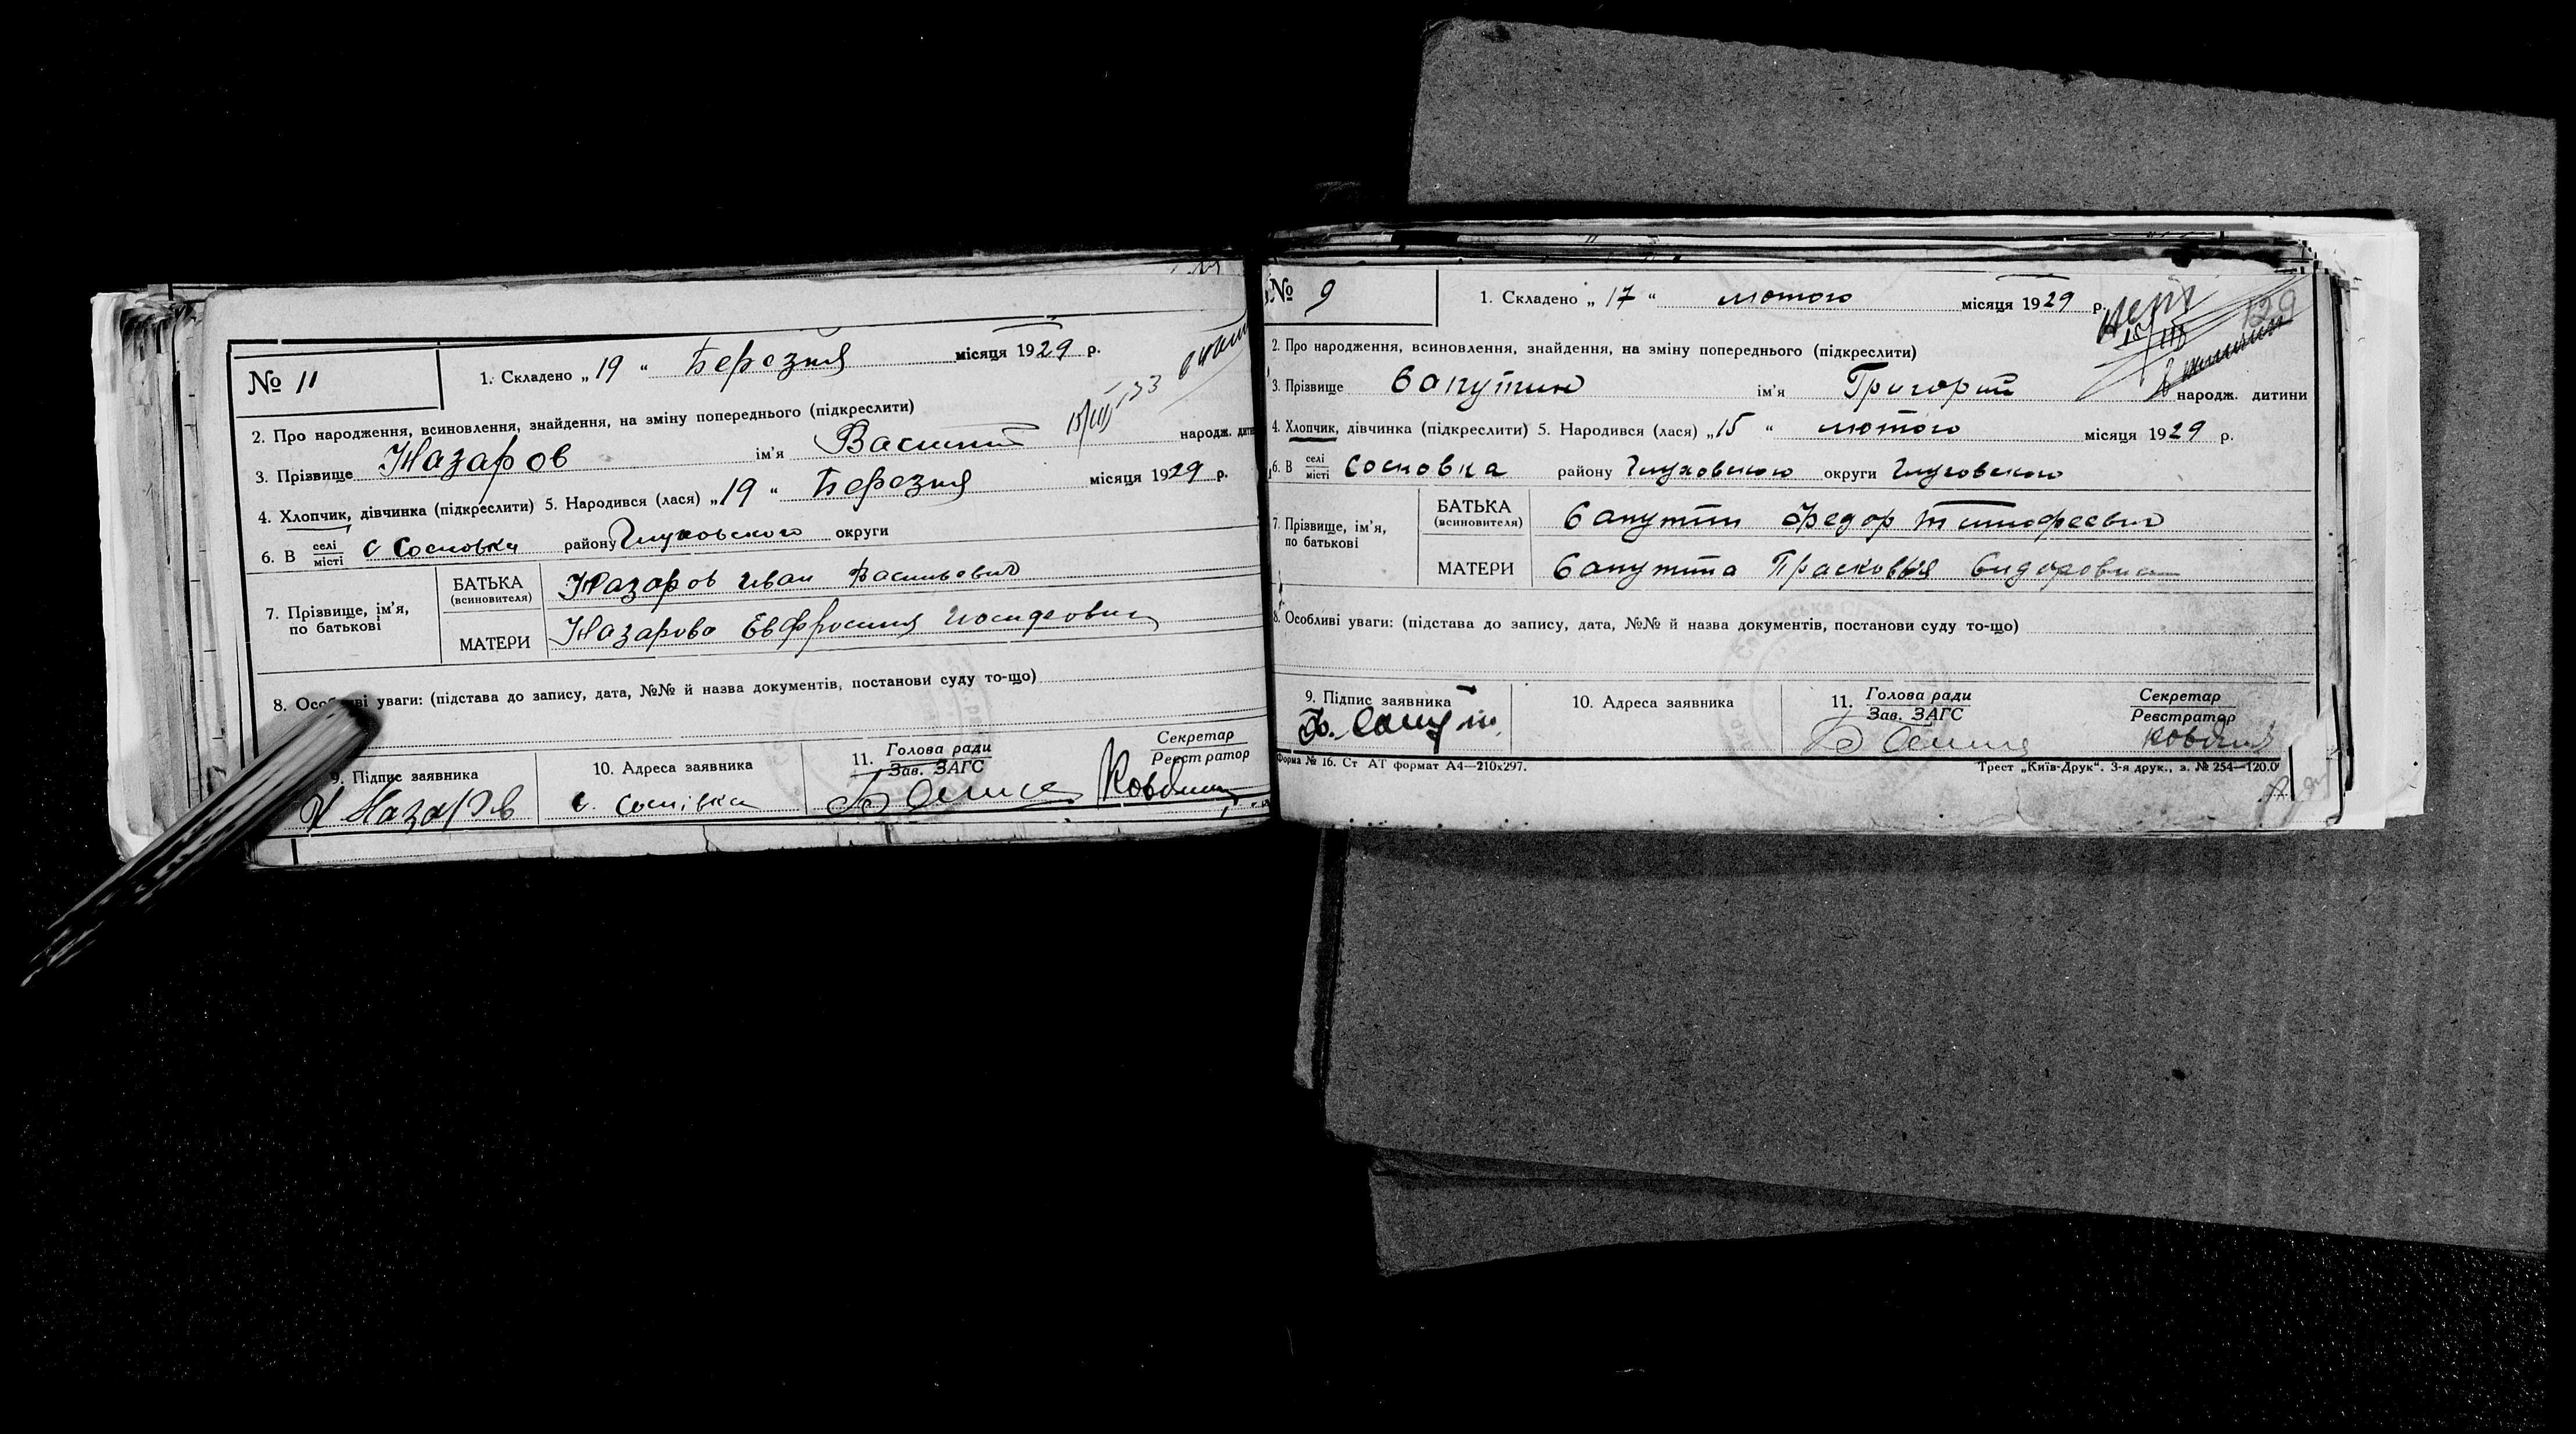 № 11
1. Складено „ 19 “ Березня місяця 1929 р.
2. Про народження, всиновлення, знайдення, на зміну попереднього (підкреслити)
15/III 33
3. Прізвище Назаров ім'я Василий народж.
4. Хлопчик, дівчинка (підкреслити) 5. Народився (лася) „ 19 “ Березня місяця 1929 р.
6. В селі місті с Сосновки району Глуховського округи
7. Прізвище, ім'я, по батькові
БАТЬКА (всиновителя) Назаров Иван Васильович
МАТЕРИ Назарова Евфросиния
8. уваги: (підстава до запису, дата, №№ й назва документів, постанови суду то-що)
9. Підпис заявника Назаров
10. Адреса заявника с. Соснівка
11. Голова ради Зав. ЗАГС
Секретар Реєстратор
№ 9
1. Складено „ 17 “ лютого місяця 1929 р.
129
2. Про народження, всиновлення, знайдення, на зміну попереднього (підкреслити)
3. Прізвище Сапутин ім'я Григорий народж. дитини
4. Хлопчик, дівчинка (підкреслити) 5. Народився (лася) „ 15 “ лютого місяця 1929 р.
6. В селі місті Сосновка району Глуховського округи Глуховського
7. Прізвище, ім'я, по батькові
БАТЬКА (всиновителя) Сапутин Федор Тимофеевич
МАТЕРИ Сапутина Прасковья Сидоровна
8. Особливі уваги: (підстава до запису, дата, №№ й назва документів, постанови суду то-що)
9. Підпис заявника
10. Адреса заявника
11. Голова ради Зав. ЗАГС
Секретар Реєстратор
Форма № 16. Ст АТ формат А4—210х297.
Трест „Київ-Друк“. 3-я друк., з. № 254—120.0